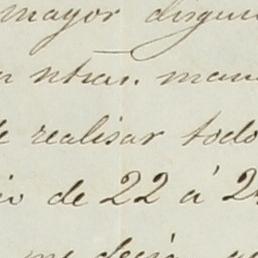 mayor disgus
ntras. man
realisar todo
de 22 á 2
me decia